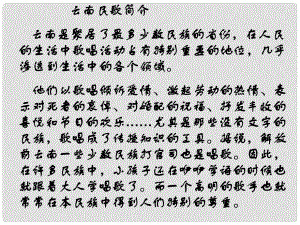 云南民歌简介
云南是聚居了最多少数民族的省份，在人民
的生活中歌唱活动占有特别重要的地位，几乎
渗透到生活中的各个领域。
他们以歌唱倾诉爱情、激起劳动的热情、表
示对死者的哀悼、对婚配的祝福、抒发丰收的
喜悦和节日的欢乐……尤其是那些没有文字的
民族，歌唱成了传授知识的工具。据说，解放
前云南一些少数民族打官司也是唱歌。因此，
在许多民族中，小孩子还在咿咿学语的时候也
就跟着大人学唱歌了。而一个高明的歌手也就
常常在本民族中得到人们特别的尊重。